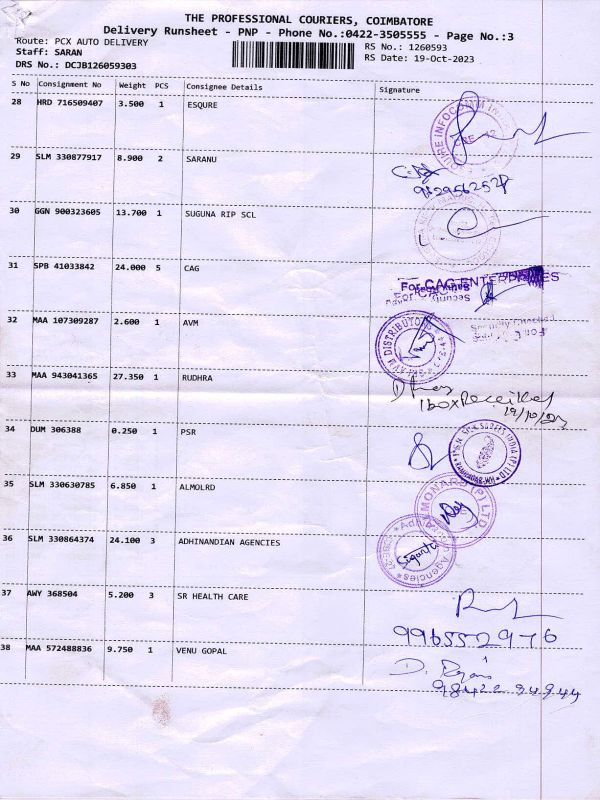 THE PROFESSIONAL COURIERS, COIMBATORE
Delivery Runsheet - PNP - Phone No.:0422-3505555 - Page No.:3
Route: PCX AUTO DELIVERY
RS No.: 1260593
Staff: SARAN
RS Date: 19-Oct-2023
DRS No.: DCJB126059303
S No Consignment No Weight PCS Consignee Details Signature
28 HRD 716509407 3.500 1 ESQURE
29 SLM 330877917 8.900 2 SARANU
30 GGN 900323605 13.700 1 SUGUNA RIP SCL
31 SPB 41033842 24.000 5 CAG
For CAG ENTERPRISES
32 MAA 107309287 2.600 1 AVM
33 MAA 943041365 27.350 1 RUDHRA
1 box Received
19/10/23
34 DUM 306388 0.250 1 PSR
35 SLM 330630785 6.850 1 ALMOLRD
ALMONARD (P) LTD
36 SLM 330864374 24.100 3 ADHINANDIAN AGENCIES
37 AWY 368504 5.200 3 SR HEALTH CARE
9965552976
38 MAA 572488836 9.750 1 VENU GOPAL
98422 94944